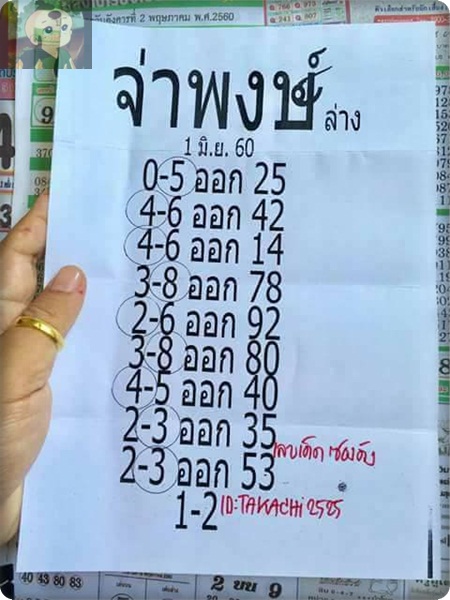 วันอังคารที่ 2 พฤษภาคม พ.ศ.2560
จ่าพงษ์ ล่าง
1 มิ.ย. 60
0-5 ออก 25
4-6 ออก 42
4-6 ออก 14
3-8 ออก 78
2-6 ออก 92
3-8 ออก 80
4-5 ออก 40
2-3 ออก 35
เลขเด็ด ซองดัง
2-3 ออก 53
1-2
ID:TAKACHi2525
40 43 80 83
2 บน 9